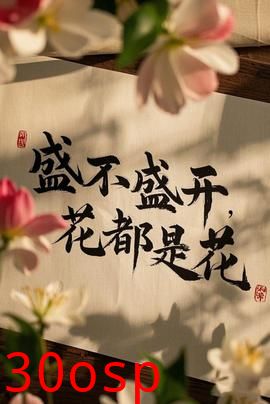 盛不盛开，
花都是花
30osp